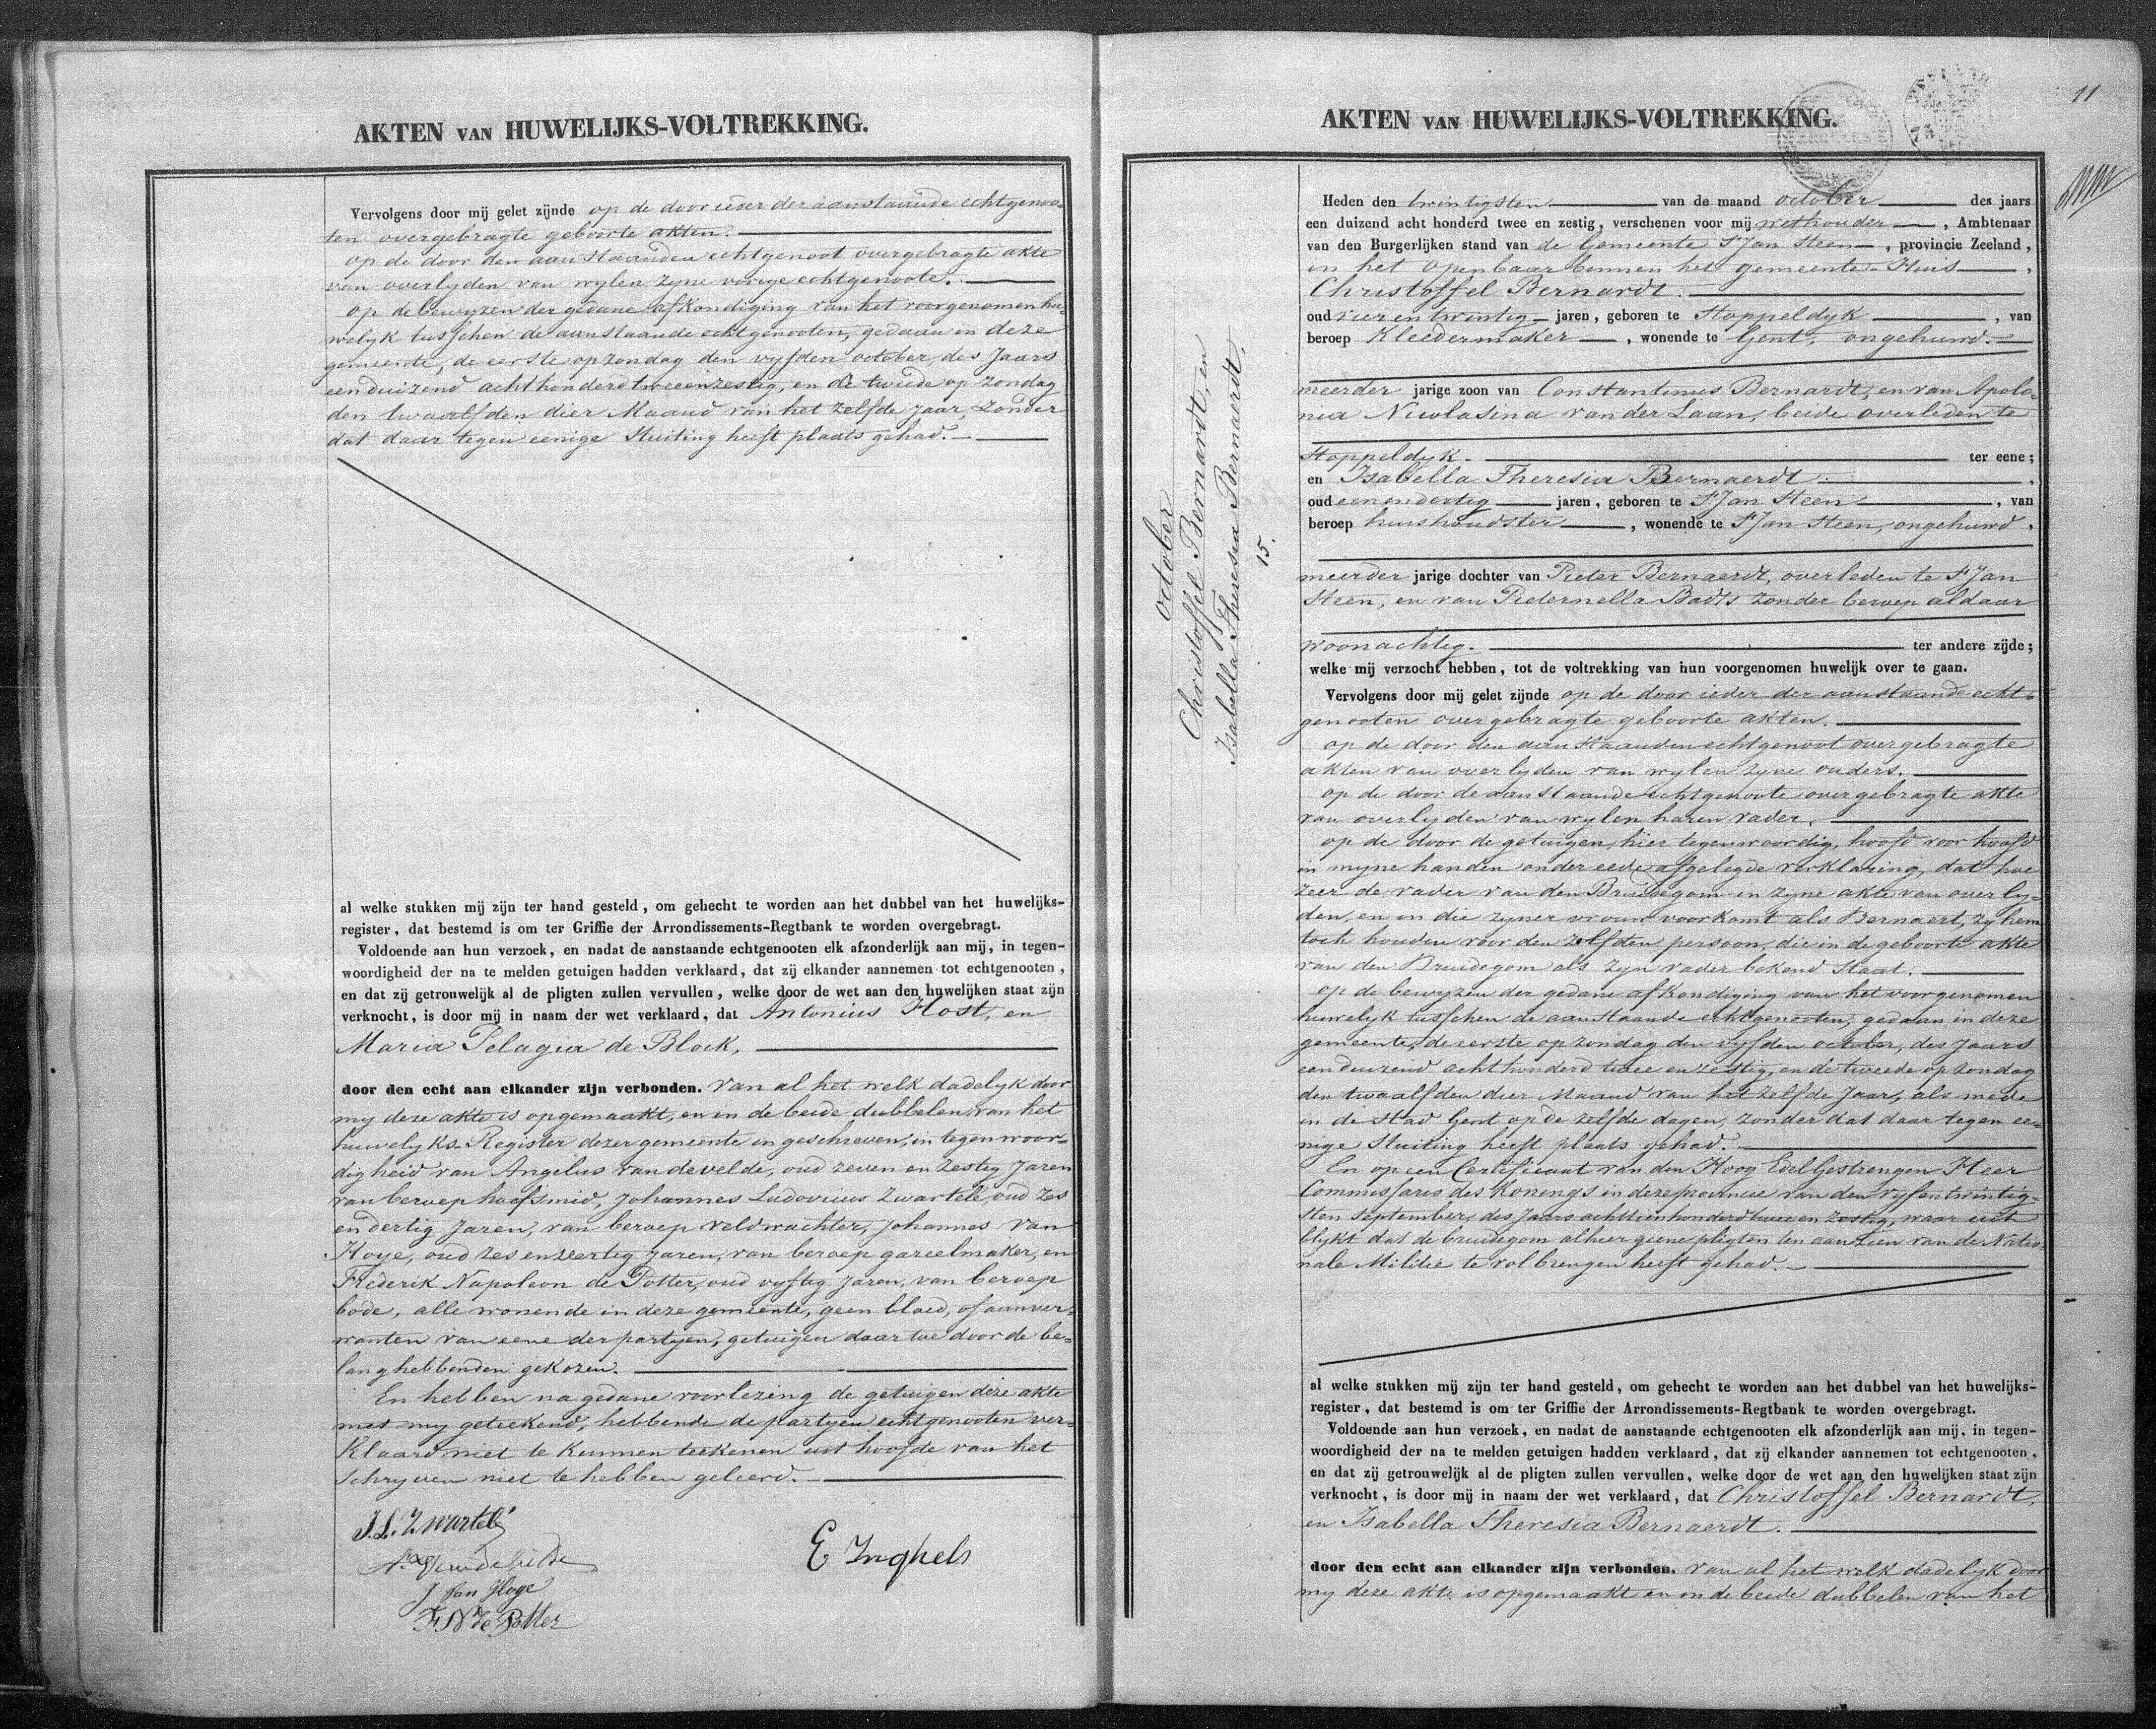 AKTEN VAN HUWELIJKS-VOLTREKKING.
Vervolgens door mij gelet zijnde op de door ieder der aanstaande echtgenoo-
ten overgebragte geboorte akten.
op de door den aanstaanden echtgenoot overgebragte akte
van overlyden van wylen zyne vorige echtgenoote.
op de bewyzen der gedane afkondiging van het voorgenomen hu-
welyk tusschen de aanstaande echtgenooten, gedaan in deze
gemeente, de eerste op zondag den vyfden october, des Jaars
eenduizend achthonderd twee en zestig, en de tweede op zondag
den twaalfden dier Maand van het zelfde jaar, zonder
dat daar tegen eenige stuiting heeft plaats gehad.
al welke stukken mij zijn ter hand gesteld, om gehecht te worden aan het dubbel van het huwelijks-
register, dat bestemd is om ter Griffie der Arrondissements-Regtbank te worden overgebragt.
Voldoende aan hun verzoek, en nadat de aanstaande echtgenooten elk afzonderlijk aan mij, in tegen-
woordigheid der na te melden getuigen hadden verklaard, dat zij elkander aannemen tot echtgenooten,
en dat zij getrouwelijk al de pligten zullen vervullen, welke door de wet aan den huwelijken staat zijn
verknocht, is door mij in naam der wet verklaard, dat Antonius Host, en
Maria Pelagia de Block,
door den echt aan elkander zijn verbonden. Van al het welk dadelyk door
my deze akte is opgemaakt, en in de beide dubbelen van het
huwelyks-Register dezer gemeente in geschreven, in tegenwoor-
digheid van Angelus van de velde, oud zeven en zestig Jaren
van beroep hoefsmid, Johannes Ludovicus Zwartelé, oud zes
en dertig Jaren, van beroep veldwachter, Johannes van
Hoye, oud zes en veertig jaren, van beroep gareelmaker, en
Frederik Napoleon de Potter, oud vyftig Jaren, van beroep
bode, alle wonende in deze gemeente, geen bloed, of aanver-
wanten van eene der partyen, getuigen daar toe door de be-
langhebbenden gekozen.
En hebben na gedane voorlezing de getuigen deze akte
met my geteekend, hebbende de partyen echtgenooten ver-
klaard niet te kunnen teekenen uit hoofde van het
schryven niet te hebben geleerd.
J. L. Zwartelé
E Inghels
J Van Hoye
F. N de Potter
11
AKTEN VAN HUWELIJKS-VOLTREKKING.
october
Christoffel Bernardt, en
Isabella Theresia Bernaerdt,
15.
Heden den twintigsten van de maand october des jaars
een duizend acht honderd twee en zestig, verschenen voor mij wethouder, Ambtenaar
van den Burgerlijken stand van de Gemeente St Jan Steen, provincie Zeeland,
in het openbaar binnen het gemeente-Huis,
Christoffel Bernardt.
oud vier en twintig jaren, geboren te Stoppeldyk, van
beroep Kleedermaker, wonende te Gent, ongehuwd.
meerder jarige zoon van Constantinus Bernardt, en van Apolo-
nia Nicolasina van der Laan, beide overleden te
Stoppeldyk. ter eene;
en Isabella Theresia Bernaerdt.
oud een en dertig jaren, geboren te St Jan Steen, van
beroep huishoudster, wonende te St Jan Steen, ongehuwd,
meerder jarige dochter van Pieter Bernaerdt, overleden te St Jan
Steen, en van Pieternella Badts zonder beroep aldaar
woonachtig. ter andere zijde;
welke mij verzocht hebben, tot de voltrekking van hun voorgenomen huwelijk over te gaan.
Vervolgens door mij gelet zijnde op de door ieder der aanstaande echt-
genooten overgebragte geboorte akten.
op de door den aanstaanden echtgenoot overgebragte
akten van overlyden van wylen zyne ouders.
op de door de aanstaande echtgenoote overgebragte akte
van overlyden van wylen haren vader.
op de door de getuigen, hier tegenwoordig, hoofd voor hoofd
in myne handen onder eede afgelegde verklaring, dat hoe
zeer de vader van den Bruidegom in zyne akte van overly-
den, en in die zyner vrouw voorkomt als Bernaert, zy hem
toch houden voor den zelfden persoon, die in de geboorte akte
van den Bruidegom als zyn vader bekend Staat.
op de bewyzen der gedane afkondiging van het voorgenomen
huwelyk tusschen de aanstaande echtgenooten, gedaan in deze
gemeente, de eerste op zondag den vyfden october, des Jaars
eenduizend achthonderd twee en zestig, en de tweede op zondag
den twaalfden dier Maand van het zelfde Jaar, als mede
in de stad Gent op de zelfde dagen, zonder dat daar tegen ee-
nige stuiting heeft plaats gehad.
En op een Certificaat van den Hoog Edel Gestrengen Heer
Commissaris des Konings in deze provincie van den vyfentwintig-
sten September, des Jaars achttienhonderd twee en zestig, waar uit
blykt dat de bruidegom alhier geene pligten ten aanzien van de Natio-
nale Militie te volbrengen heeft gehad.
al welke stukken mij zijn ter hand gesteld, om gehecht te worden aan het dubbel van het huwelijks-
register, dat bestemd is om ter Griffie der Arrondissements-Regtbank te worden overgebragt.
Voldoende aan hun verzoek, en nadat de aanstaande echtgenooten elk afzonderlijk aan mij, in tegen-
woordigheid der na te melden getuigen hadden verklaard, dat zij elkander aannemen tot echtgenooten,
en dat zij getrouwelijk al de pligten zullen vervullen, welke door de wet aan den huwelijken staat zijn
verknocht, is door mij in naam der wet verklaard, dat Christoffel Bernardt,
en Isabella Theresia Bernaerdt.
door den echt aan elkander zijn verbonden. Van al het welk dadelyk door
my deze akte is opgemaakt en in de beide dubbelen van het